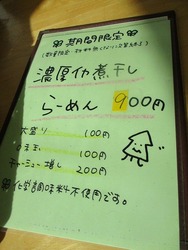 期間限定
濃厚作煮干し
らーめん 900円
大盛り 100円
味玉 100円
チャーシュー増し 200円
化学調味料不使用です。